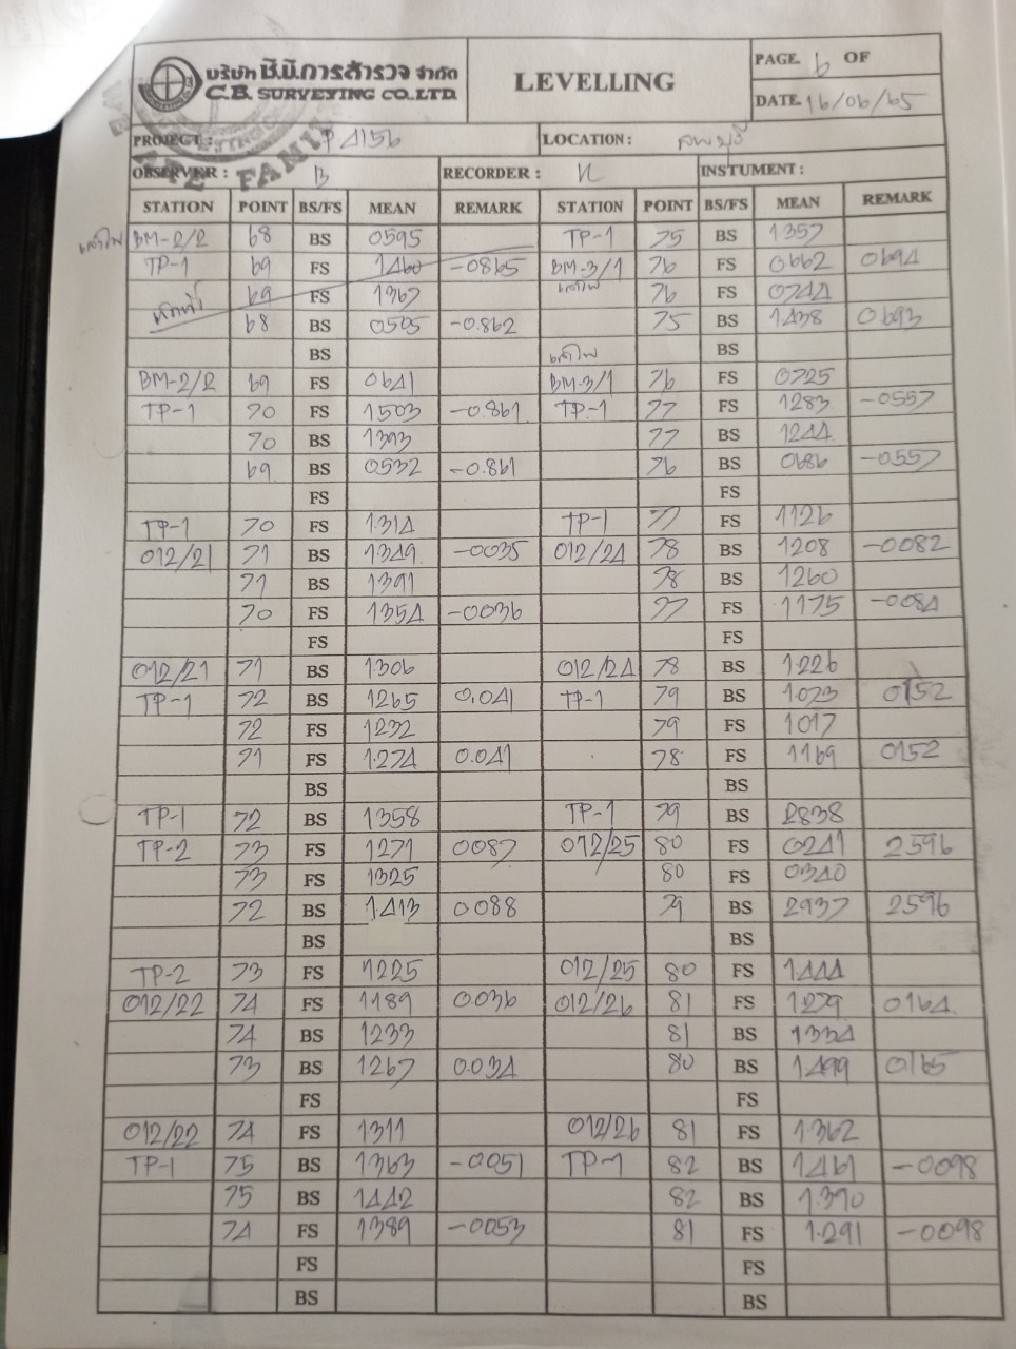 บริษัท ซี.บี.การสำรวจ จำกัด
C.B. SURVEYING CO.,LTD.
LEVELLING
PAGE. 6 OF
DATE. 16/06/65
PROJECT : P 4156
LOCATION :
OBSERVER : B RECORDER : INSTUMENT :
STATION POINT BS/FS MEAN REMARK STATION POINT BS/FS MEAN REMARK
BM-2/2 68 BS 0595 TP-1 75 BS 1357
TP-1 69 FS 1460 -0865 BM-3/1 76 FS 0662 0694
69 FS 1367 76 FS 0744
68 BS 0505 -0.862 75 BS 1438 0693
BS BS
BM-2/2 69 FS 0641 BM-3/1 76 FS 0725
TP-1 70 FS 1503 -0.861 TP-1 77 FS 1283 -0557
70 BS 1393 77 BS 1244
69 BS 0532 -0.861 76 BS 0686 -0557
FS FS
TP-1 70 FS 1314 TP-1 77 FS 1126
012/21 71 BS 1349 -0035 012/24 78 BS 1208 -0082
71 BS 1391 78 BS 1260
70 FS 1354 -0036 77 FS 1175 -0084
FS FS
012/21 71 BS 1306 012/24 78 BS 1226
TP-1 72 BS 1265 0.041 TP-1 79 BS 1.073 0152
72 FS 1232 79 FS 1017
71 FS 1.274 0.041 78 FS 1169 0152
BS BS
TP-1 72 BS 1358 TP-1 79 BS 2838
TP-2 73 FS 1271 0087 012/25 80 FS 0241 2596
73 FS 1325 80 FS 0340
72 BS 1413 0088 79 BS 2937 2596
BS BS
TP-2 73 FS 1225 012/25 80 FS 1444
012/22 74 FS 1189 0036 012/26 81 FS 1279 0164
74 BS 1233 81 BS 1334
73 BS 1267 0.034 80 BS 1499 0165
FS FS
012/22 74 FS 1311 012/26 81 FS 1.362
TP-1 75 BS 1363 -0051 TP-1 82 BS 1461 -0098
75 BS 1442 82 BS 1.390
74 FS 1.389 -0053 81 FS 1.291 -0098
FS FS
BS BS